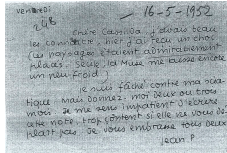 Vendredi
16-5-1952
Chère Camilla, J'avais beau
les connaître, hier j'ai reçu un choc
(les paysages étaient admirablement
placés. Seule, la Muse me laisse encore
un peu froid)
Je suis fâché contre ma
mais donnez moi deux ou trois
mois. Je me sens impatient d'écrire
cette note, trop content si elle ne vous dé-
plaît pas. Je vous embrasse tous deux
Jean P.